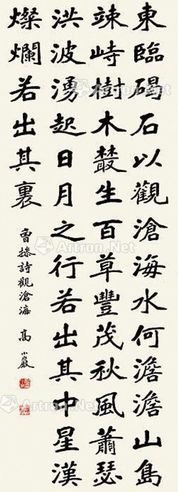 東臨碣石以觀滄海水何澹澹山島
竦峙樹木叢生百草豐茂秋風蕭瑟
洪波湧起日月之行若出其中星漢
燦爛若出其裏
曹操詩觀滄海 高小巖